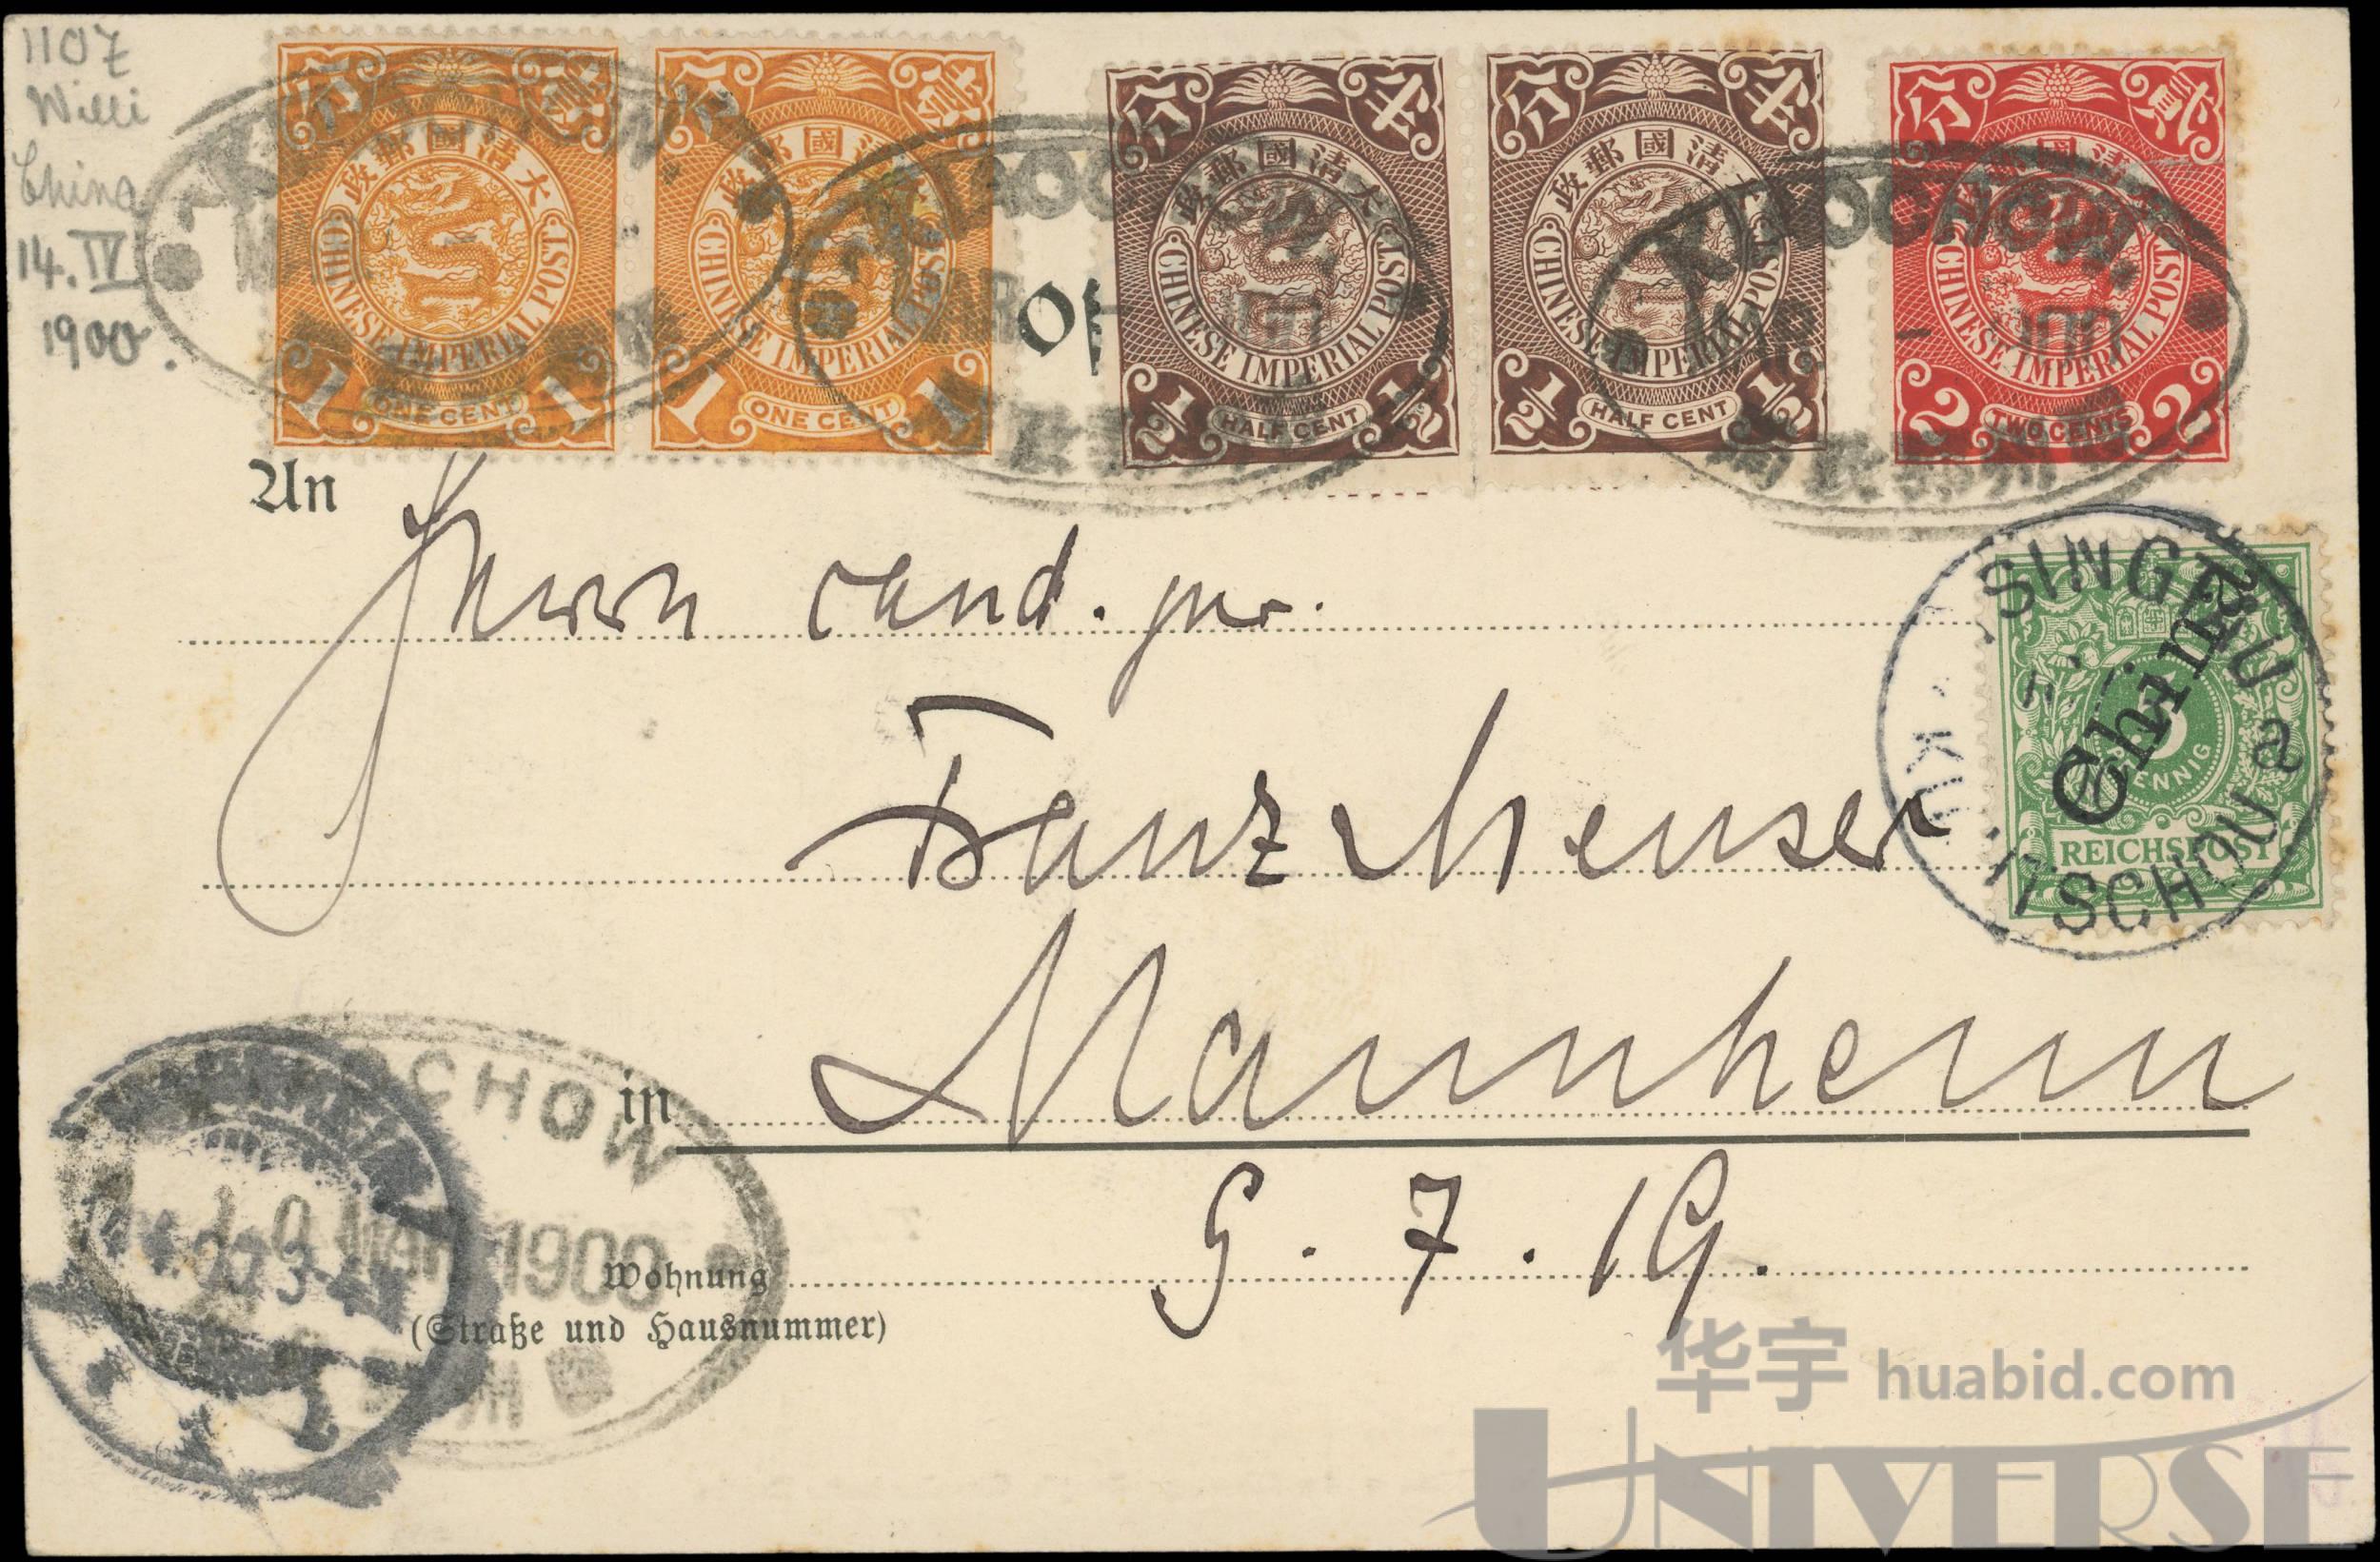 1107
Willi
China
14. IV
1900.
分 壹
大清國郵政
CHINESE IMPERIAL POST
1 ONE CENT 1
分 壹
大清國郵政
CHINESE IMPERIAL POST
1 ONE CENT 1
分 半
大清國郵政
CHINESE IMPERIAL POST
½ HALF CENT ½
分 半
大清國郵政
CHINESE IMPERIAL POST
½ HALF CENT ½
分 貳
大清國郵政
CHINESE IMPERIAL POST
2 TWO CENTS 2
KIAOCHOW.
An
Herrn cand. jur.
Mannheim
G. 7. 19.
in
China
5
PFENNIG
REICHSPOST
TSINGTAU
KIAUTSCHOU
a
CHOW
MAR 1900
Wohnung
(Straße und Hausnummer)
华宇 huabid.com
UNIVERSE